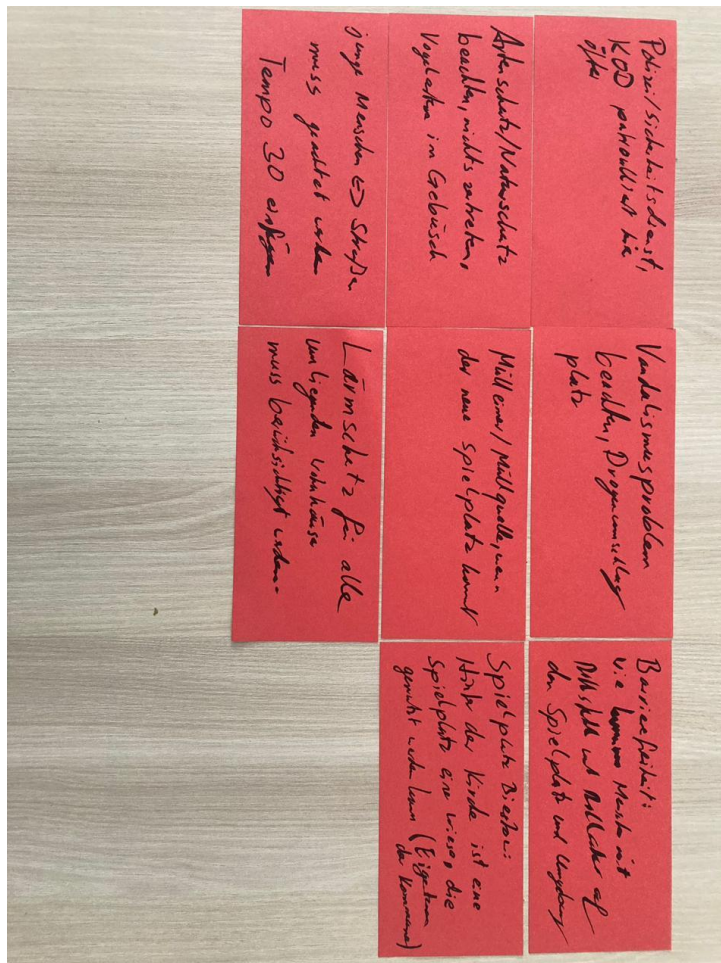 Polizei/Sicherheitsdienst,
KOD patroulliert hier
öfter
Vandalismusproblem
beachten, Drogenumschlag
platz
Barrierefreiheit:
wie kommen Menschen mit
Rollstuhl und Rollator auf
den Spielplatz und Umgebung
Artenschutz/Naturschutz
beachten, nichts zertreten,
Vogelarten in Gebüsch
Mülleimer/Müllquelle, wenn
der neue Spielplatz kommt
Spielplatz Biestow:
Hinter der Kirche ist eine
Spielplatz eine Wiese, die
genutzt werden kann (Eigentum
der Kommune)
junge Menschen <=> Straße
muss geachtet werden
Tempo 30 einfügen
Lärmschutz für alle
umliegenden Wohnhäuser
muss berücksichtigt werden.